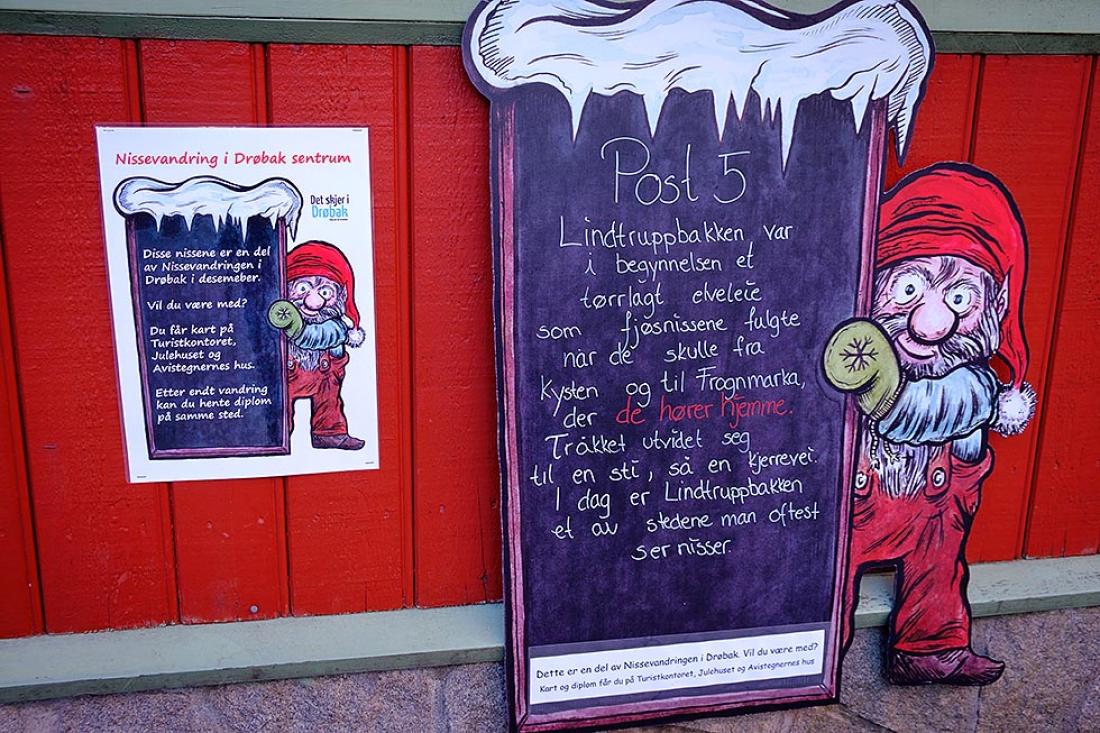 Nissevandring i Drøbak sentrum
Det skjer i
Drøbak
Disse nissene er en del
av Nissevandringen i
Drøbak i desemeber.
Vil du være med?
Du får kart på
Turistkontoret,
Julehuset og
Avistegnernes hus.
Etter endt vandring
kan du hente diplom
på samme sted.
Post 5
Lindtruppbakken var
i begynnelsen et
tørrlagt elveleie
som fjøsnissene fulgte
når de skulle fra
Kysten og til Frognmarka,
der de hører hjemme.
Tråkket utvidet seg
til en sti, så en kjerrevei.
I dag er Lindtruppbakken
et av stedene man oftest
ser nisser.
Dette er en del av Nissevandringen i Drøbak. Vil du være med?
Kart og diplom får du på Turistkontoret, Julehuset og Avistegnernes hus